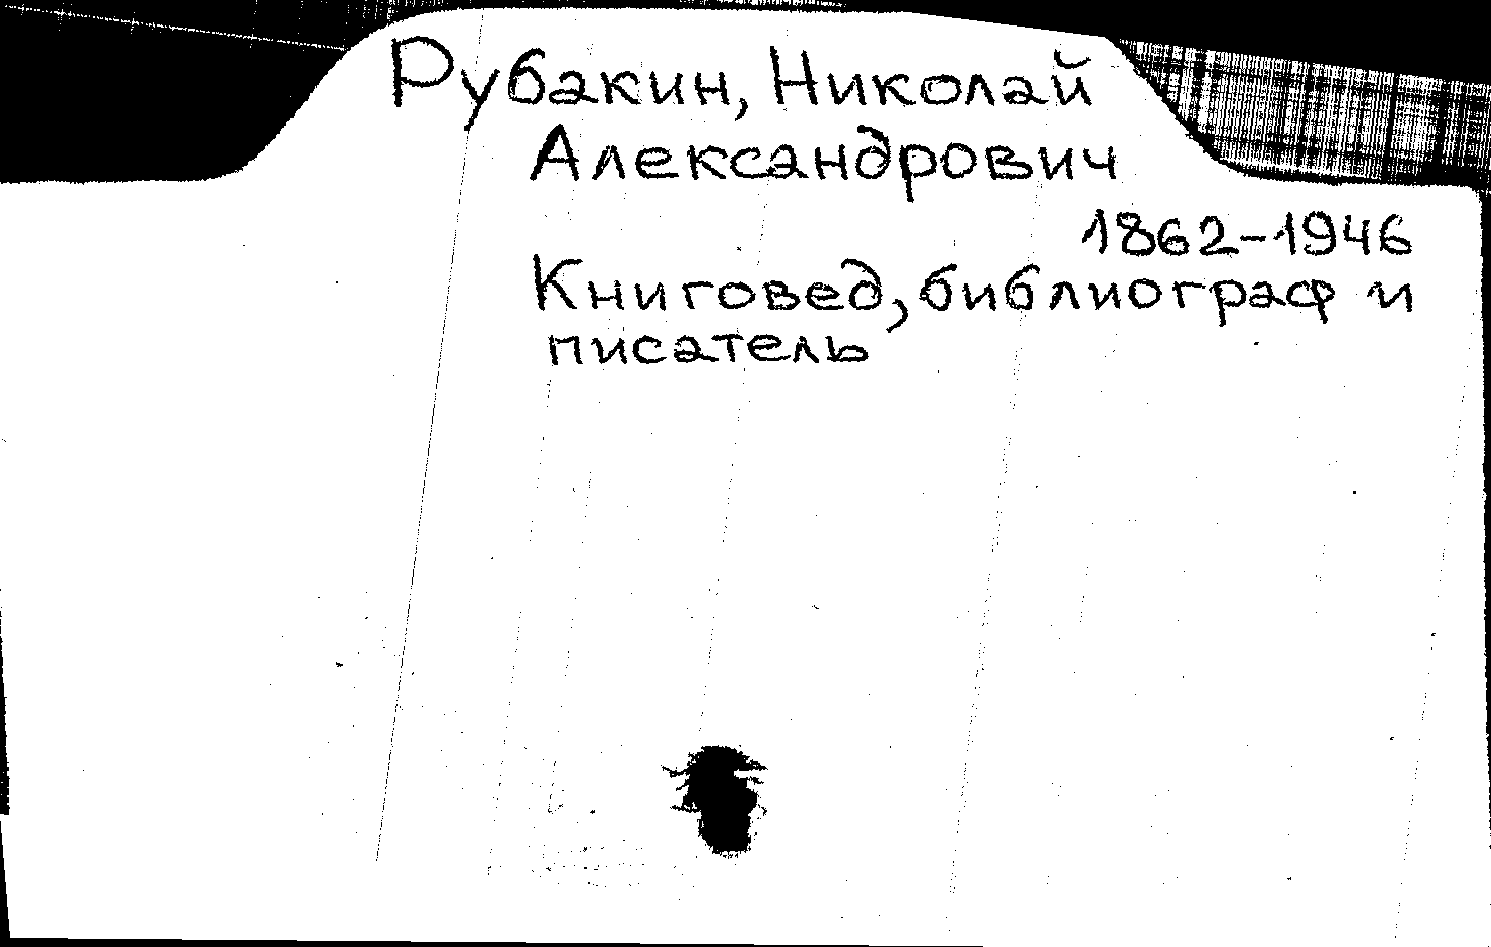 Рубакин, Николай
Александрович
1862-1946
Книговед, библиограф и
писатель